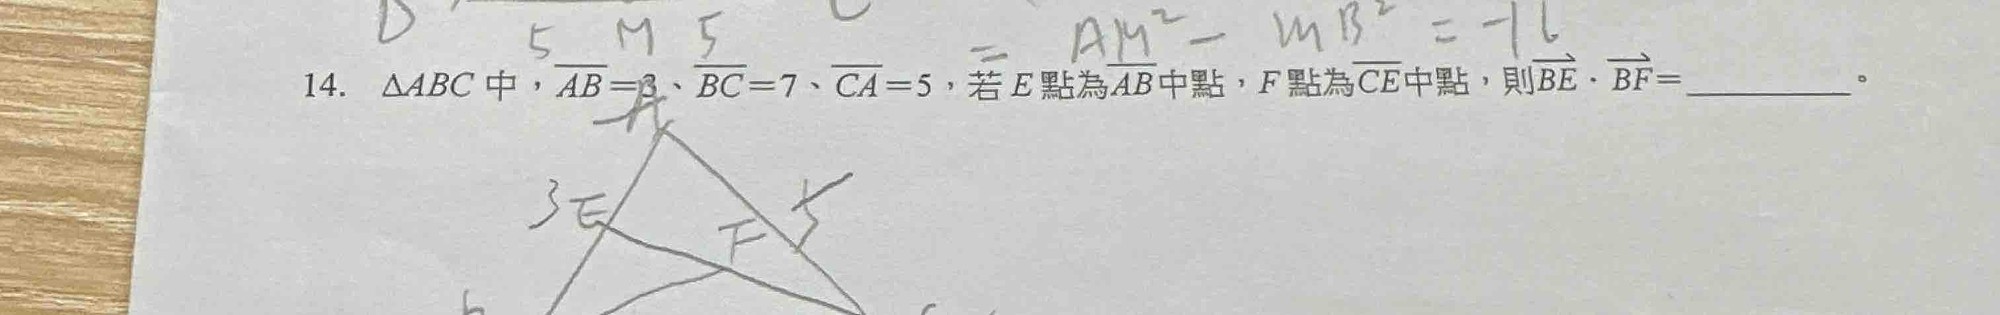 5 M 5
= AM² - MB² = -16
14. ΔABC 中，AB=3、BC=7、CA=5，若 E 點為AB中點，F 點為CE中點，則BE · BF=________。
A
3 E F 5